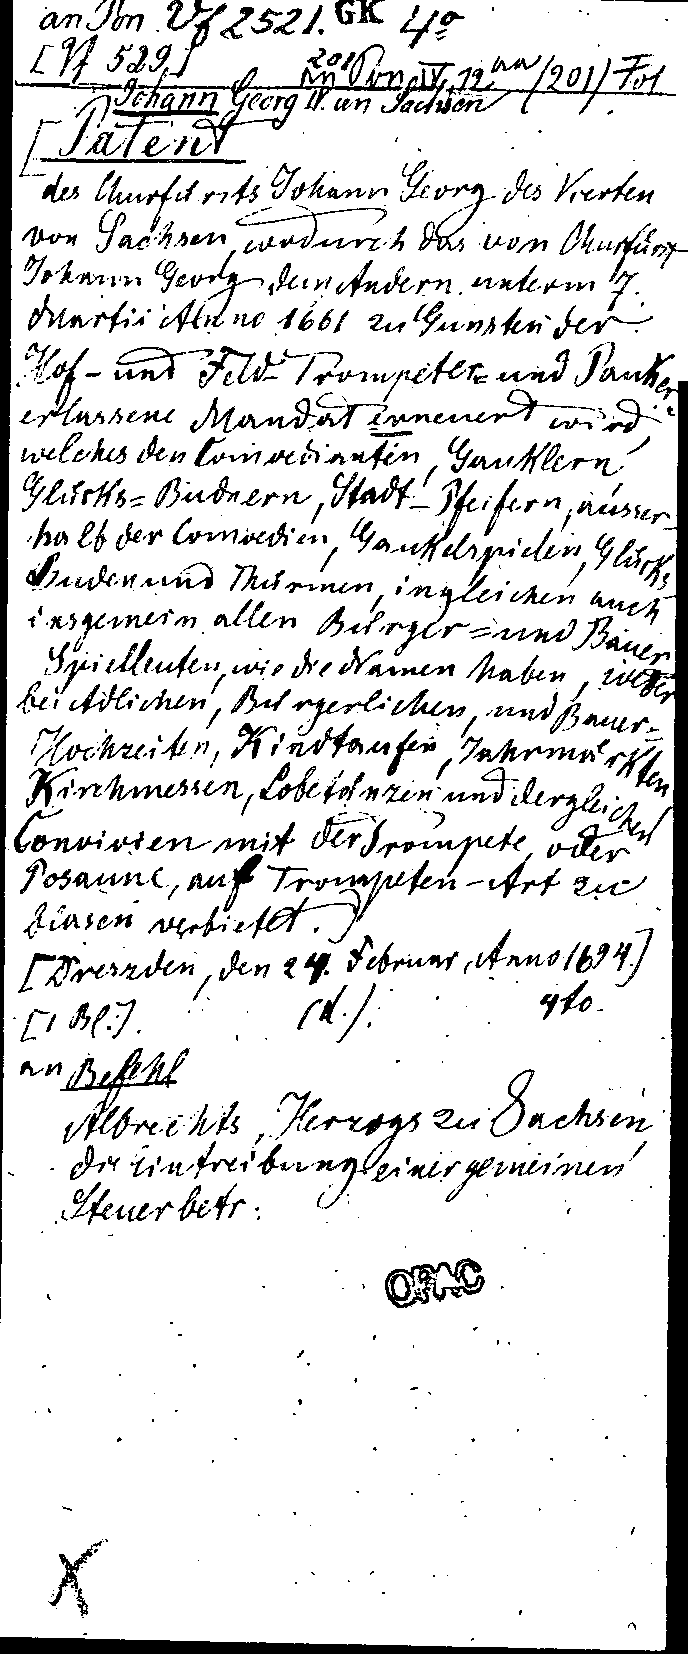 an Pon Vf 2521. GK 4º
[Vf 529.] an Pon IV, 12 (201) Fol
201
Johann Georg IV. un Sachsen
[Patent
des Churfürsts Johann Georg des Vierten
von Sachsen, wodurch das von Churfürst
Johann Georg dem Andern unterm 7.
Martii Anno 1661 zu Gunsten der
Hof- und Feld-Trompeter= und Pauker=
erlassene Mandat erneuert wird,
welches den Comoedianten, Gauklern,
Glücks=Budnern, Stadt-Pfeifern, ausser-
halb der Comoedien, Gaukelspielen, Glücks
Buden und Thürmen, ingleichen auch
insgemein allen Bürger= und Bauer
Spielleuten, wie die Namen haben, weder
bei Adlichen, Bürgerlichen, und Bauer=
Hochzeiten, Kindtaufen, Jahrmärkten,
Kirchmessen, Lobetänzen und dergleichen
Convivien mit der Trompete, oder
Posaune, auf Trompeten-Art zu
blasen verbietet.]
[Dreszden, den 24. Februar, Anno 1694.]
[1 Bl.]. (d.). 4to.
an Befehl
Albrechts, Herzogs zu Sachsen,
die Eintreibung einer gemeinen
Steuer betr:
OPAC
X